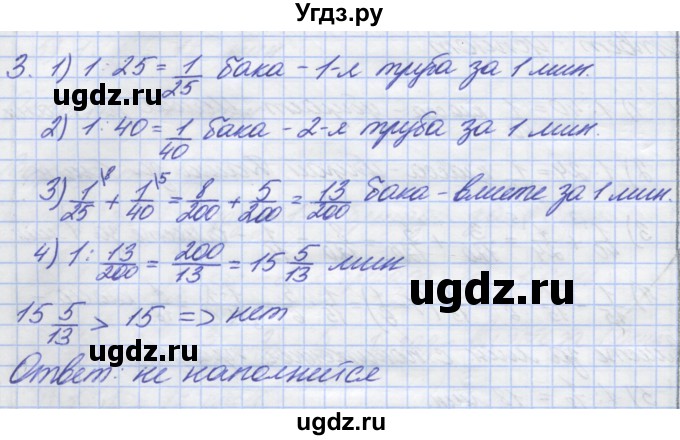 Угдз.ру
3. 1) 1 : 25 = 1/25 бака - 1-я труба за 1 мин.
2) 1 : 40 = 1/40 бака - 2-я труба за 1 мин.
3) 1/25 \8 + 1/40 \5 = 8/200 + 5/200 = 13/200 бака - вместе за 1 мин.
4) 1 : 13/200 = 200/13 = 15 5/13 мин
15 5/13 > 15 => нет
Ответ: не наполнится
ugdz.ru
ugdz.ru
ugdz.ru
ugdz.ru
ugdz.ru
ugdz.ru
ugdz.ru